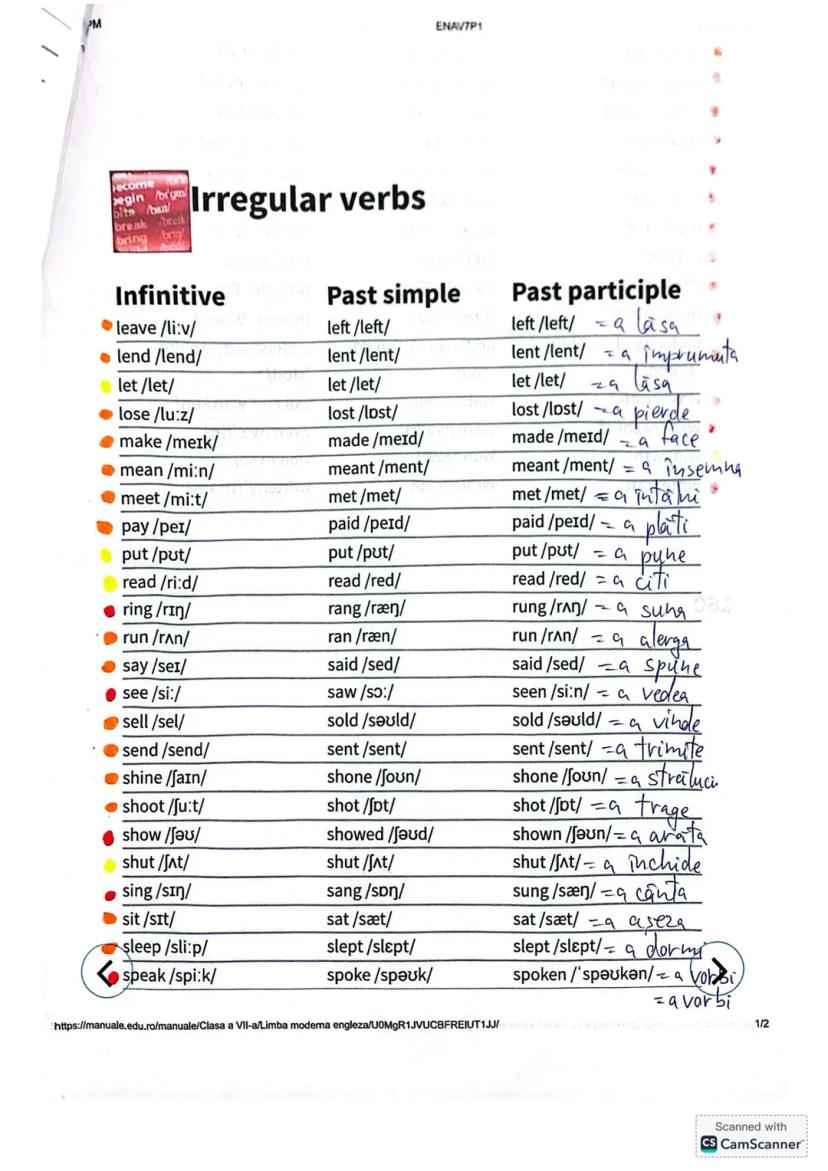 PM
ENAV7P1
become
begin /bɪˈgɪn/
bite /baɪt/
break /breɪk/
bring /brɪŋ/
Irregular verbs
Infinitive Past simple Past participle
leave /liːv/ left /left/ left /left/ = a lăsa
lend /lend/ lent /lent/ lent /lent/ = a împrumuta
let /let/ let /let/ let /let/ = a lăsa
lose /luːz/ lost /lɒst/ lost /lɒst/ = a pierde
make /meɪk/ made /meɪd/ made /meɪd/ = a face
mean /miːn/ meant /ment/ meant /ment/ = a însemna
meet /miːt/ met /met/ met /met/ = a întâlni
pay /peɪ/ paid /peɪd/ paid /peɪd/ = a plăti
put /pʊt/ put /pʊt/ put /pʊt/ = a pune
read /riːd/ read /red/ read /red/ = a citi
ring /rɪŋ/ rang /ræŋ/ rung /rʌŋ/ = a suna
run /rʌn/ ran /ræn/ run /rʌn/ = a alerga
say /seɪ/ said /sed/ said /sed/ = a spune
see /siː/ saw /sɔː/ seen /siːn/ = a vedea
sell /sel/ sold /səʊld/ sold /səʊld/ = a vinde
send /send/ sent /sent/ sent /sent/ = a trimite
shine /ʃaɪn/ shone /ʃoʊn/ shone /ʃoʊn/ = a străluci
shoot /ʃuːt/ shot /ʃɒt/ shot /ʃɒt/ = a trage
show /ʃəʊ/ showed /ʃəʊd/ shown /ʃəʊn/ = a arăta
shut /ʃʌt/ shut /ʃʌt/ shut /ʃʌt/ = a închide
sing /sɪŋ/ sang /sɒŋ/ sung /sæŋ/ = a cânta
sit /sɪt/ sat /sæt/ sat /sæt/ = a așeza
sleep /sliːp/ slept /slɛpt/ slept /slɛpt/ = a dormi
speak /spiːk/ spoke /spəʊk/ spoken /ˈspəʊkən/ = a vorbi
= a vorbi
https://manuale.edu.ro/manuale/Clasa a VII-a/Limba moderna engleza/U0MgR1JVUCBFREIUT1JJ/ 1/2
Scanned with
CS CamScanner